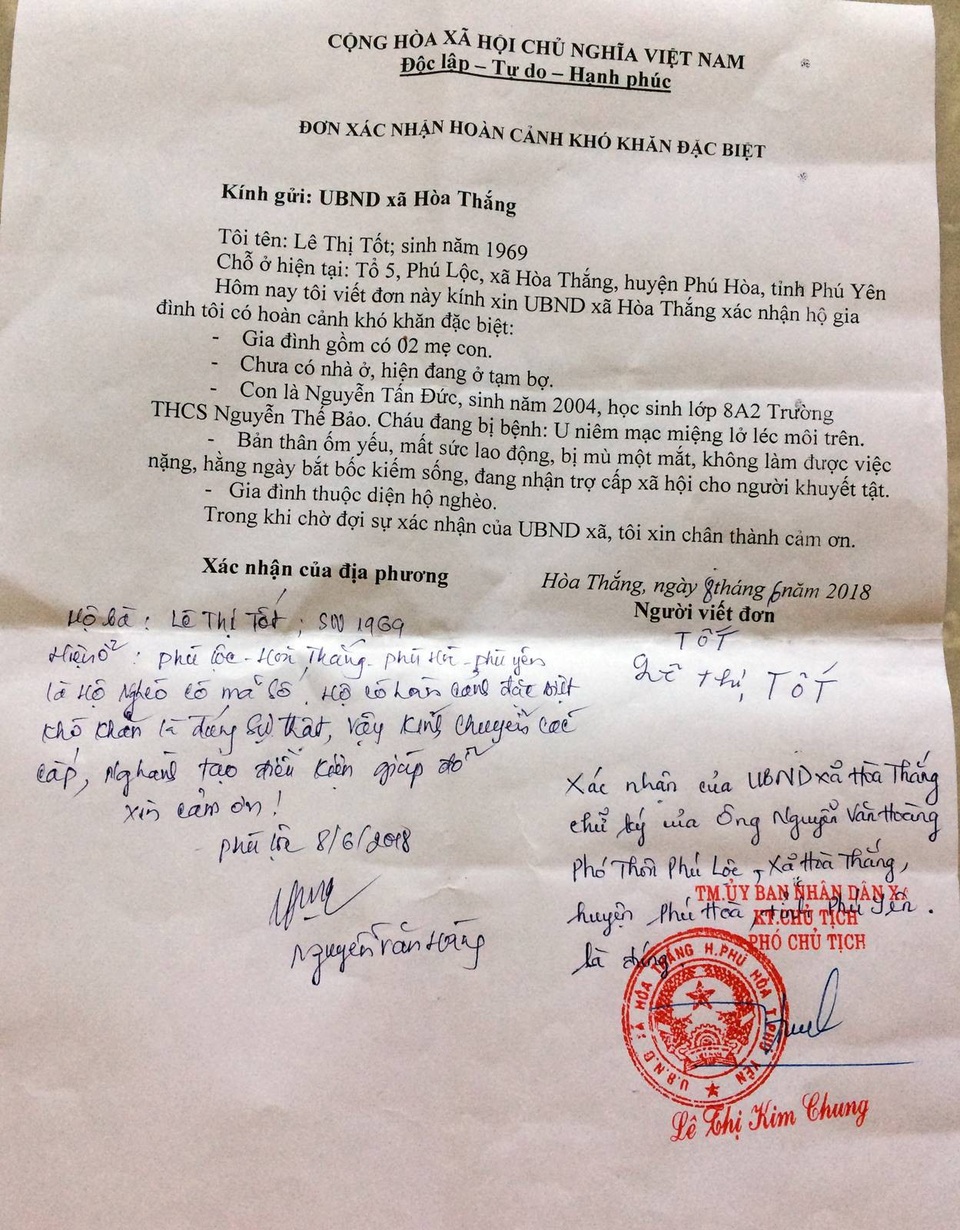 CỘNG HÒA XÃ HỘI CHỦ NGHĨA VIỆT NAM
Độc lập – Tự do – Hạnh phúc
ĐƠN XÁC NHẬN HOÀN CẢNH KHÓ KHĂN ĐẶC BIỆT
Kính gửi: UBND xã Hòa Thắng
Tôi tên: Lê Thị Tốt; sinh năm 1969
Chỗ ở hiện tại: Tổ 5, Phú Lộc, xã Hòa Thắng, huyện Phú Hòa, tỉnh Phú Yên
Hôm nay tôi viết đơn này kính xin UBND xã Hòa Thắng xác nhận hộ gia
đình tôi có hoàn cảnh khó khăn đặc biệt:
- Gia đình gồm có 02 mẹ con.
- Chưa có nhà ở, hiện đang ở tạm bợ.
- Con là Nguyễn Tấn Đức, sinh năm 2004, học sinh lớp 8A2 Trường
THCS Nguyễn Thế Bảo. Cháu đang bị bệnh: U niêm mạc miệng lở léc môi trên.
- Bản thân ốm yếu, mất sức lao động, bị mù một mắt, không làm được việc
nặng, hằng ngày bắt bốc kiếm sống, đang nhận trợ cấp xã hội cho người khuyết tật.
- Gia đình thuộc diện hộ nghèo.
Trong khi chờ đợi sự xác nhận của UBND xã, tôi xin chân thành cảm ơn.
Xác nhận của địa phương
Hòa Thắng, ngày 8 tháng 6 năm 2018
Người viết đơn
TỐT
Lê thị TỐT
Hộ bà : Lê Thị Tốt ; SN 1969
Hiện ở : phú Lộc - Hoà Thắng - phú Hoà - phú yên
là Hộ Nghèo có mã số, Hộ có hoàn cảnh đặc biệt
khó khăn là đúng sự thật, vậy kính chuyển các
cấp, Nghành tạo điều kiện giúp đỡ
xin cảm ơn !
phú lộc 8/6/2018
Nguyễn Văn Hoàng
Xác nhận của UBND xã Hoà Thắng
chữ ký của Ông Nguyễn Văn Hoàng
Phó Thôn Phú Lộc, Xã Hoà Thắng,
huyện Phú Hoà, tỉnh Phú Yên.
là đúng.
TM.ỦY BAN NHÂN DÂN XÃ
KT.CHỦ TỊCH
PHÓ CHỦ TỊCH
U.B.N.D XÃ HÒA THẮNG H.PHÚ HÒA T.PHÚ YÊN
Lê Thị Kim Chung